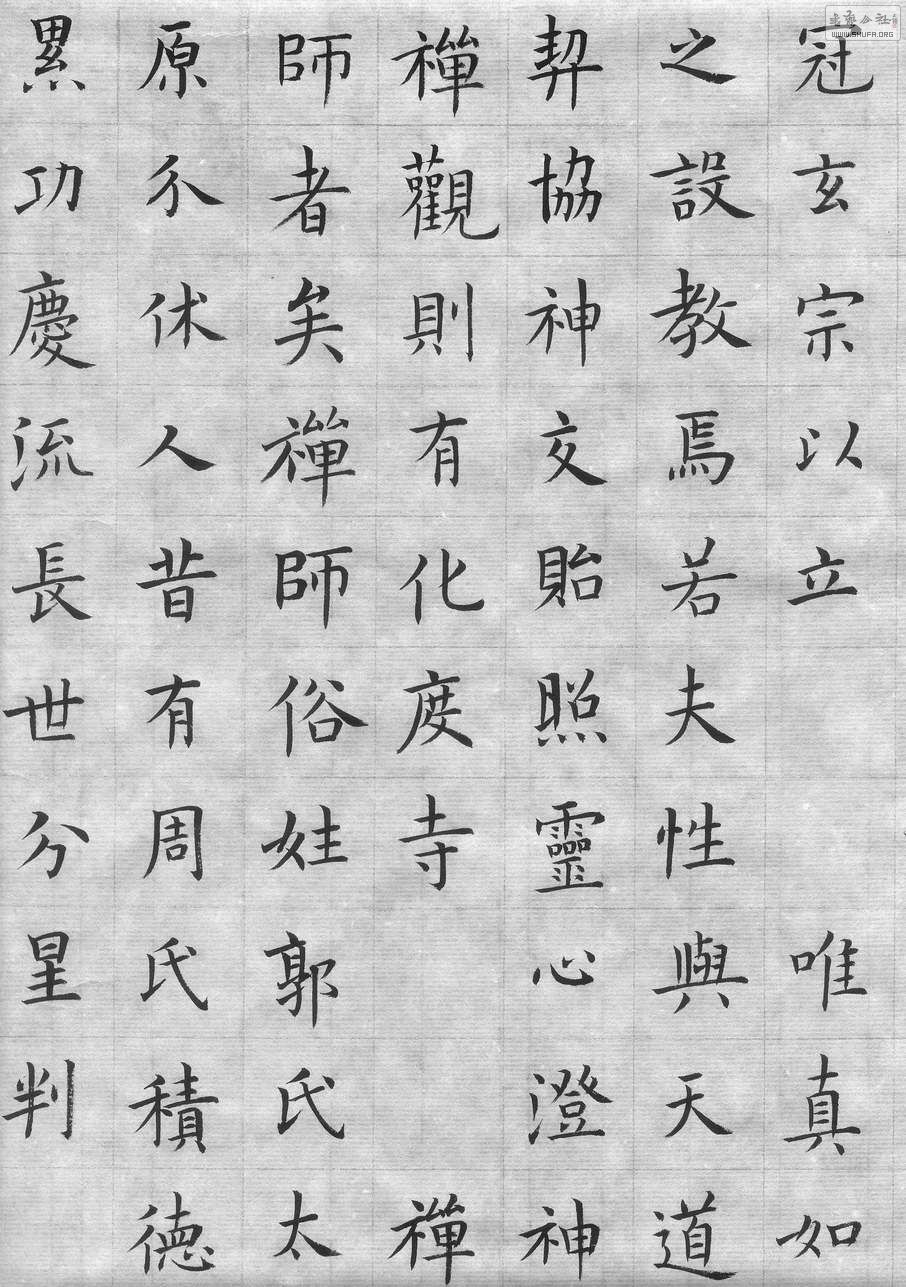 冠玄宗以立唯真如
之設教焉若夫性與天道
契協神交貽照靈心澄神
禪觀則有化度寺禪
師者矣禪師俗姓郭氏太
原介休人昔有周氏積德
累功慶流長世分星判
書藝公社
WWW.SHUFA.ORG